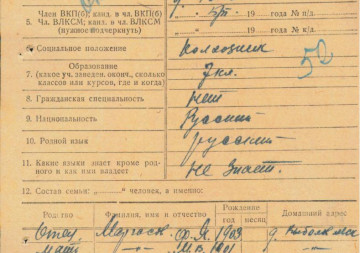 Член ВКП(б), канд. в чл. ВКП(б)
5. Чл. ВЛКСМ; канд. в чл. ВЛКСМ 19 года № п/д.
(нужное подчеркнуть) 19 года № п/д.
6. Социальное положение Колхозник
Образование 52
7. (какое уч. заведен. оконч., сколько 7 кл.
классов или курсов, где и когда)
8. Гражданская специальность Нет
9. Национальность Русский
10. Родной язык русский
11. Какие языки знает кроме род-
ного и как ими владеет не знает.
12. Состав семьи: „......“ человек, а именно:
Родство Фамилия, имя и отчество Рождение Домашний адрес
год месяц
Отец Ф. Я. 1903 д.
мать М. 1901